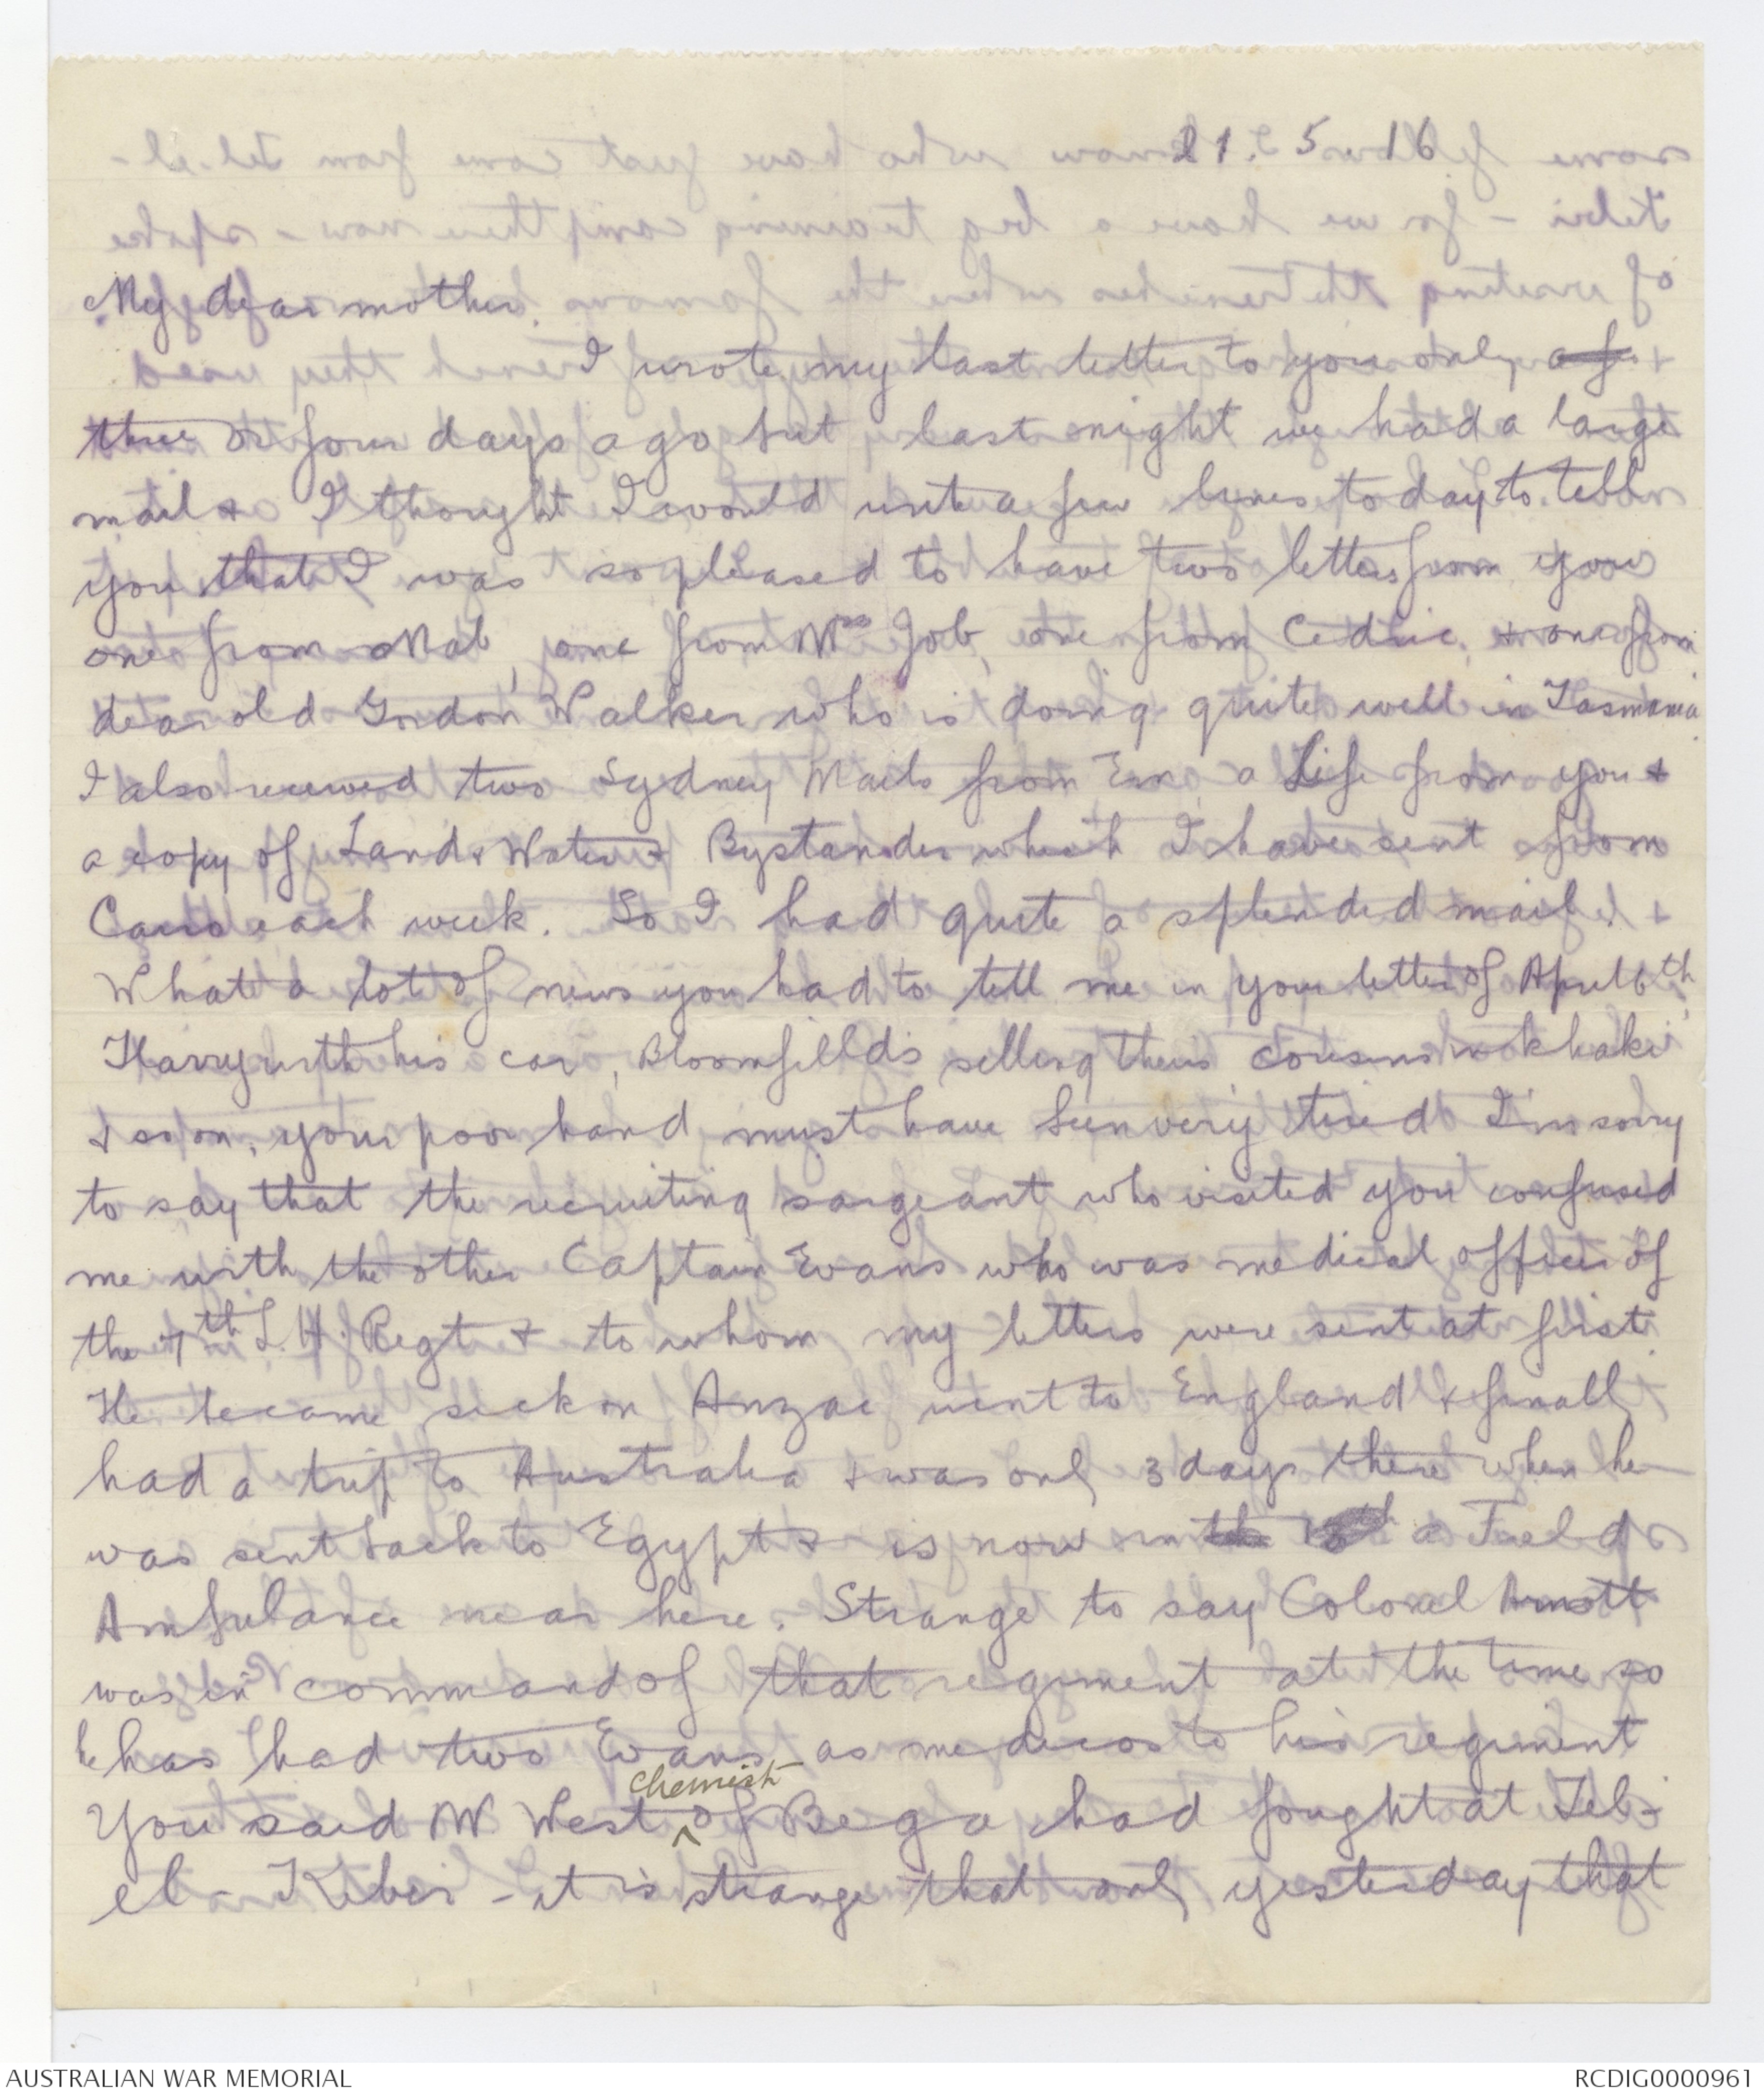 21. 5. 16
My dear mother.
I wrote my last letter to you only
three or four days ago but last night we had a large
mail & I thought I would write a few lines today to tell
you that I was so pleased to have two letters from you
one from Mab, one from Mrs Job, one from Cedric, & one from
dear old Gordon Walker who is doing quite well in Tasmania.
I also received two Sydney Mails from Em, a Life from you &
a copy of Land & Water & Bystander which I have sent from
Cairo each week. So I had quite a splendid mail.
What a lot of news you had to tell me in your letter of April 6th,
Harry with his car, Bloomfield's selling their cousins in khaki
& so on, your poor hand must have been very tired I'm sorry
to say that the recruiting sargeant who visited you confused
me with the other Captain Evans who was medical officer of
the 7th L. H. Regt & to whom my letters were sent at first.
He became sick on Anzac went to England & finally
had a trip to Australia & was only 3 days there when he
was sent back to Egypt & is now in the a Field
Ambulance near here. Strange to say Colonel Arnott
was in command of that regiment at the time so
he has had two Evans as medicos to his regiment
chemist
You said W. West ^ of Bega had fought at Tel-
el-Kebir - it is strange that only yesterday that
AUSTRALIAN WAR MEMORIAL
RCDIG0000961